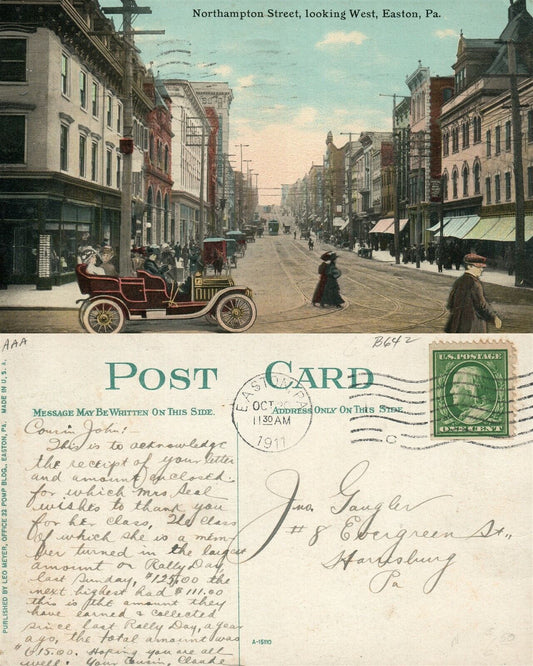 Northampton Street, looking West, Easton, Pa.
AAA
B642
POST CARD
MESSAGE MAY BE WRITTEN ON THIS SIDE.
ADDRESS ONLY ON THIS SIDE.
EASTON, PA.
OCT
11 30 AM
1911
U.S. POSTAGE
ONE CENT
Cousin John:-
This is to acknowledge
the receipt of your letter
and amount enclosed.
for which Mrs Seal
wishes to thank you
for her class. The class
of which she is a mem-
ber turned in the largest
amount on Rally Day,
last Sunday, $125.00 the
next highest had $111.00
this is the amount they
have earned & collected
since last Rally Day, a year
ago, the total amount was
$615.00. Hoping you are all
well. Your Cousin, Claude
Jno. Gaugler
#8 Evergreen St.,
Harrisburg
Pa
PUBLISHED BY LEO MEYER, OFFICE 32 POMP BLDG., EASTON, PA. MADE IN U.S.A.
A-15110